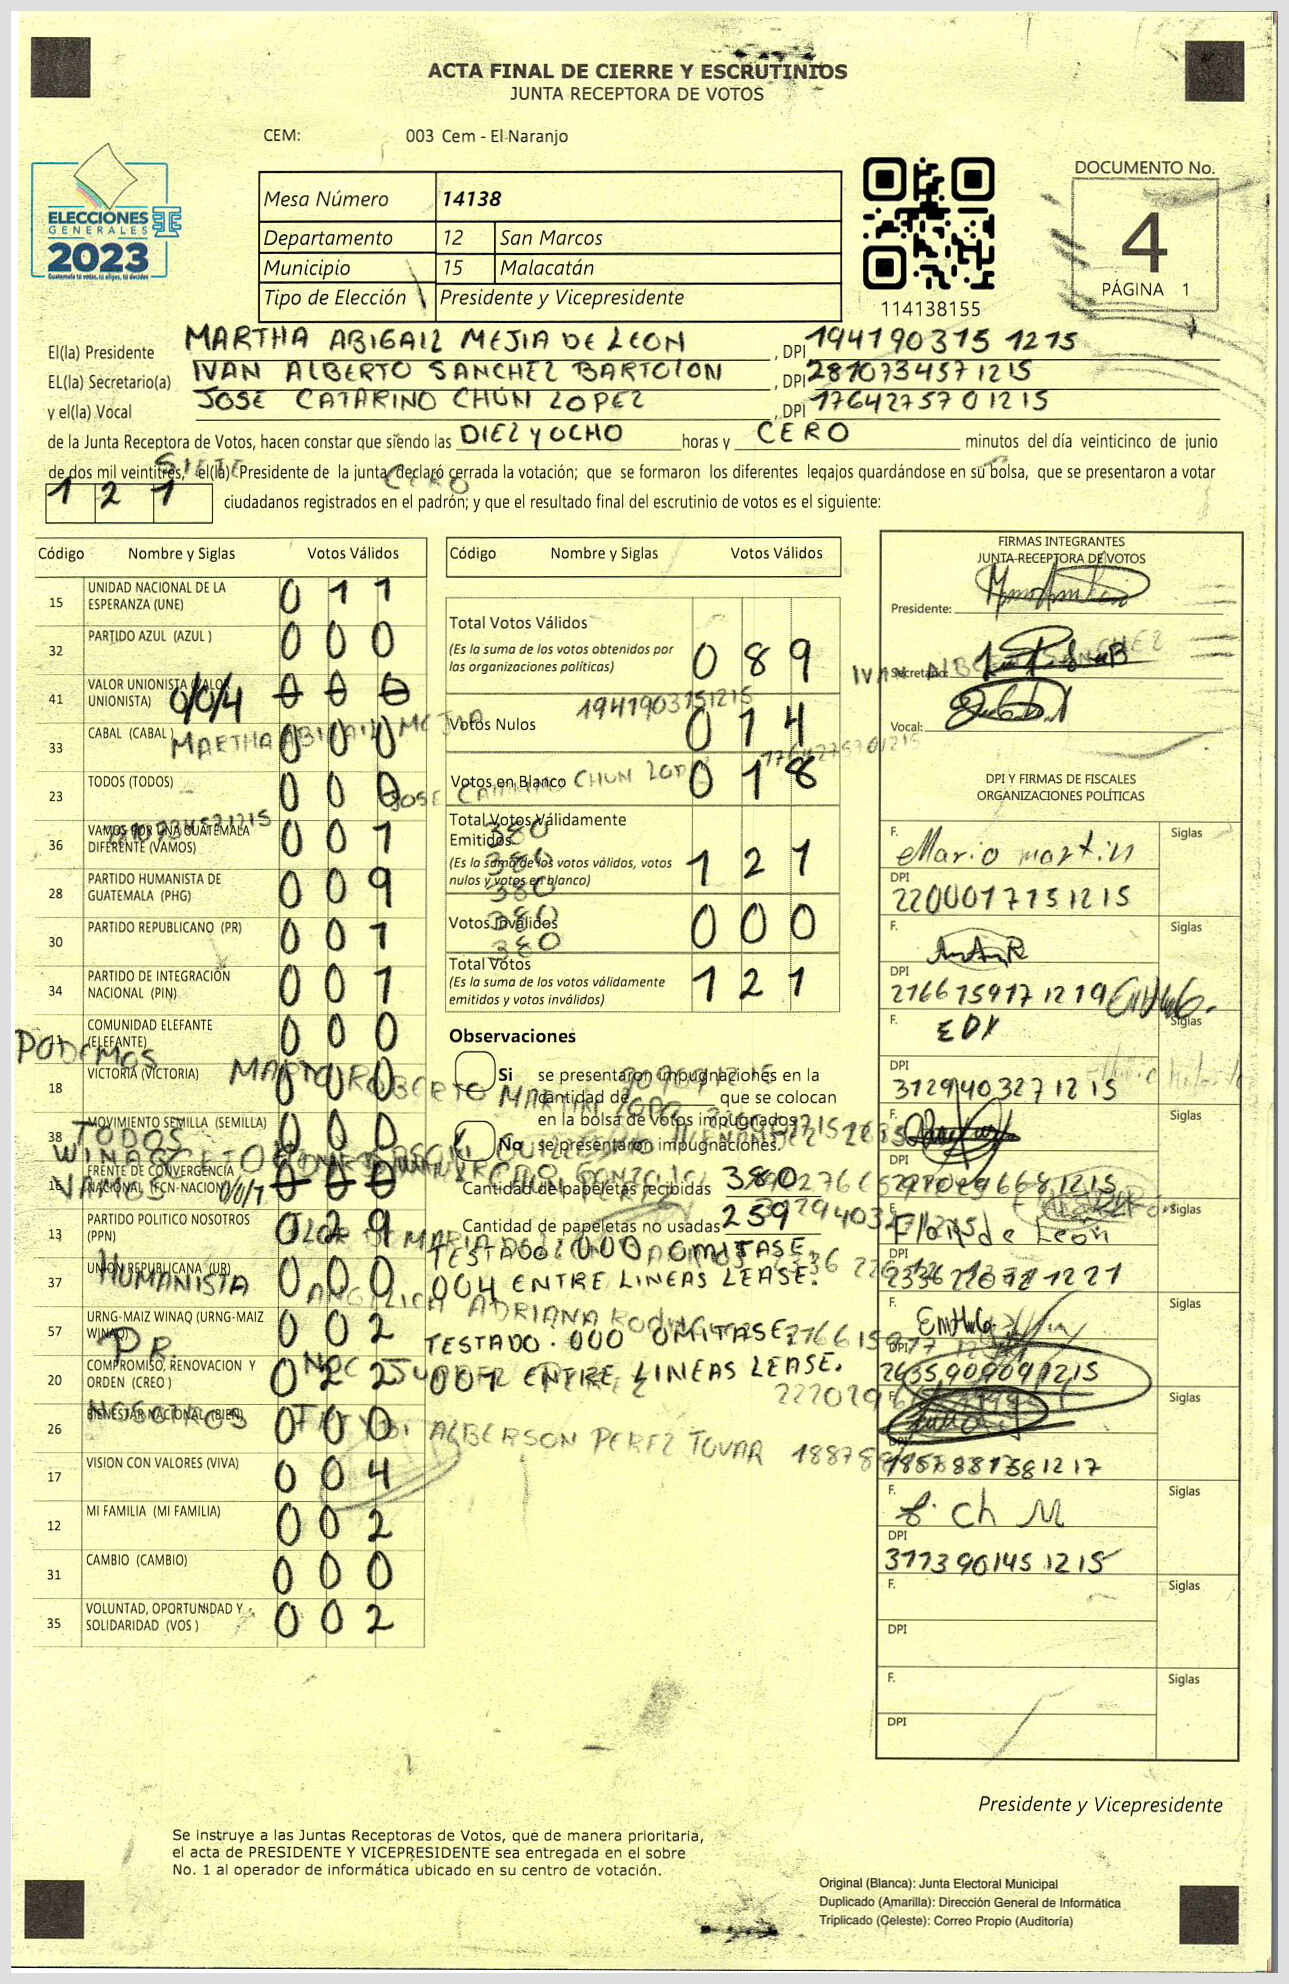 ACTA FINAL DE CIERRE Y ESCRUTINIOS
JUNTA RECEPTORA DE VOTOS
CEM: 003 Cem - El Naranjo
ELECCIONES
GENERALES
2023
Guatemala tú votas, tú eliges, tú decides
Mesa Número 14138
Departamento 12 San Marcos
Municipio 15 Malacatán
Tipo de Elección Presidente y Vicepresidente
114138155
DOCUMENTO No.
4
PÁGINA 1
El(la) Presidente MARTHA ABIGAIL MEJIA DE LEON , DPI 194190315 1215
EL(la) Secretario(a) IVAN ALBERTO SANCHEZ BARTOLON , DPI 281073457 1215
y el(la) Vocal JOSE CATARINO CHUN LOPEZ , DPI 176427570 1215
de la Junta Receptora de Votos, hacen constar que siendo las DIEZ Y OCHO horas y CERO minutos del día veinticinco de junio
de dos mil veintitres, el(la) Presidente de la junta declaró cerrada la votación; que se formaron los diferentes legajos guardándose en su bolsa, que se presentaron a votar
SIETE CERO
121 ciudadanos registrados en el padrón; y que el resultado final del escrutinio de votos es el siguiente:
Código Nombre y Siglas Votos Válidos
15 UNIDAD NACIONAL DE LA ESPERANZA (UNE) 011
32 PARTIDO AZUL (AZUL ) 000
41 VALOR UNIONISTA (VALOR UNIONISTA) 0/0/4 000
33 CABAL (CABAL ) 000
MARTHA ABIGAIL MEJIA
23 TODOS (TODOS) 000
36 VAMOS POR UNA GUATEMALA DIFERENTE (VAMOS) 001
28 PARTIDO HUMANISTA DE GUATEMALA (PHG) 009
30 PARTIDO REPUBLICANO (PR) 001
34 PARTIDO DE INTEGRACIÓN NACIONAL (PIN) 001
11 COMUNIDAD ELEFANTE (ELEFANTE) 000
PODEMOS
18 VICTORIA (VICTORIA) 000
38 MOVIMIENTO SEMILLA (SEMILLA) 000
TODOS
WINAQ
16 FRENTE DE CONVERGENCIA NACIONAL (FCN-NACION) 0/0/1 000
VAMOS
13 PARTIDO POLITICO NOSOTROS (PPN) 029
37 UNION REPUBLICANA (UR) 000
HUMANISTA
57 URNG-MAIZ WINAQ (URNG-MAIZ WINAQ) 002
PR.
20 COMPROMISO, RENOVACION Y ORDEN (CREO ) 022
26 BIENESTAR NACIONAL (BIEN) 000
NOSOTROS
17 VISION CON VALORES (VIVA) 004
12 MI FAMILIA (MI FAMILIA) 002
31 CAMBIO (CAMBIO) 000
35 VOLUNTAD, OPORTUNIDAD Y SOLIDARIDAD (VOS ) 002
Código Nombre y Siglas Votos Válidos
Total Votos Válidos
(Es la suma de los votos obtenidos por las organizaciones políticas) 089
1941903151215
Votos Nulos 014
1764275701215
Votos en Blanco 018
JOSE CATARINO CHUN LOPEZ
Total Votos Válidamente Emitidos
(Es la suma de los votos válidos, votos nulos y votos en blanco) 121
380
380
380
380
380
Votos Inválidos 000
Total Votos
(Es la suma de los votos válidamente emitidos y votos inválidos) 121
Observaciones
Si se presentaron impugnaciones en la
cantidad de ________ que se colocan
en la bolsa de votos impugnados.
No se presentaron impugnaciones.
Cantidad de papeletas recibidas 380
Cantidad de papeletas no usadas 259
TESTADO: 000 OMITASE
004 ENTRE LINEAS LEASE.
ANGELICA ADRIANA
TESTADO. 000 OMITASE.
001 ENTRE LINEAS LEASE.
ALBERSON PEREZ TOVAR
FIRMAS INTEGRANTES
JUNTA RECEPTORA DE VOTOS
Presidente:
Secretario:
IVAN ALBERTO SANCHEZ
Vocal:
DPI Y FIRMAS DE FISCALES
ORGANIZACIONES POLÍTICAS
F. Mario martin Siglas
DPI 220001715 1215
F. Siglas
DPI 216615917 1219
F. EDY Siglas
DPI 312940327 1215
F. Siglas
DPI 222029668 1215
F. Flor de León Siglas
DPI 2336 22072 1221
F. Siglas
DPI 2635909091215
F. Siglas
DPI 1887881581217
F. f. Ch M Siglas
DPI 311390145 1215
F. Siglas
DPI
F. Siglas
DPI
Presidente y Vicepresidente
Se instruye a las Juntas Receptoras de Votos, que de manera prioritaria,
el acta de PRESIDENTE Y VICEPRESIDENTE sea entregada en el sobre
No. 1 al operador de informática ubicado en su centro de votación.
Original (Blanca): Junta Electoral Municipal
Duplicado (Amarilla): Dirección General de Informática
Triplicado (Celeste): Correo Propio (Auditoría)